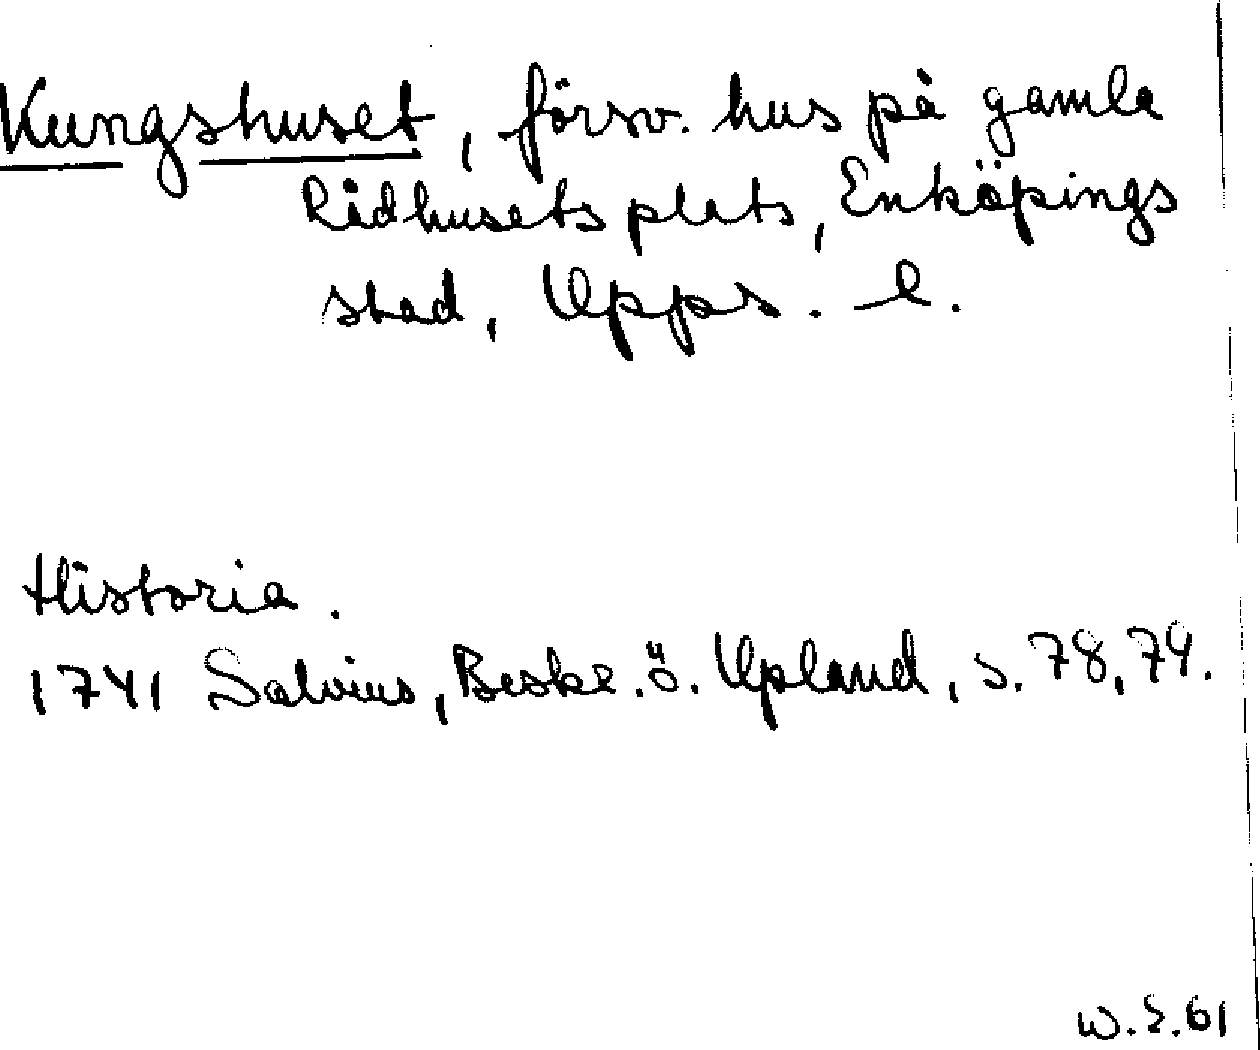 Kungshuset, försv. hus på gamla
Rådhusets plats, Enköpings
stad, Upps. l.
Historia.
1741 Salvius, Beskr. ö. Upland, s. 78, 79.
W.S.61